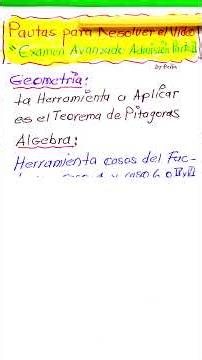 Pautas para Resolver el Video
"Examen Avanzado Admisión Parte
by Peña
Geometría:
La Herramienta a Aplicar
es el Teorema de Pitagoras
Algebra:
Herramienta casos del Fac-